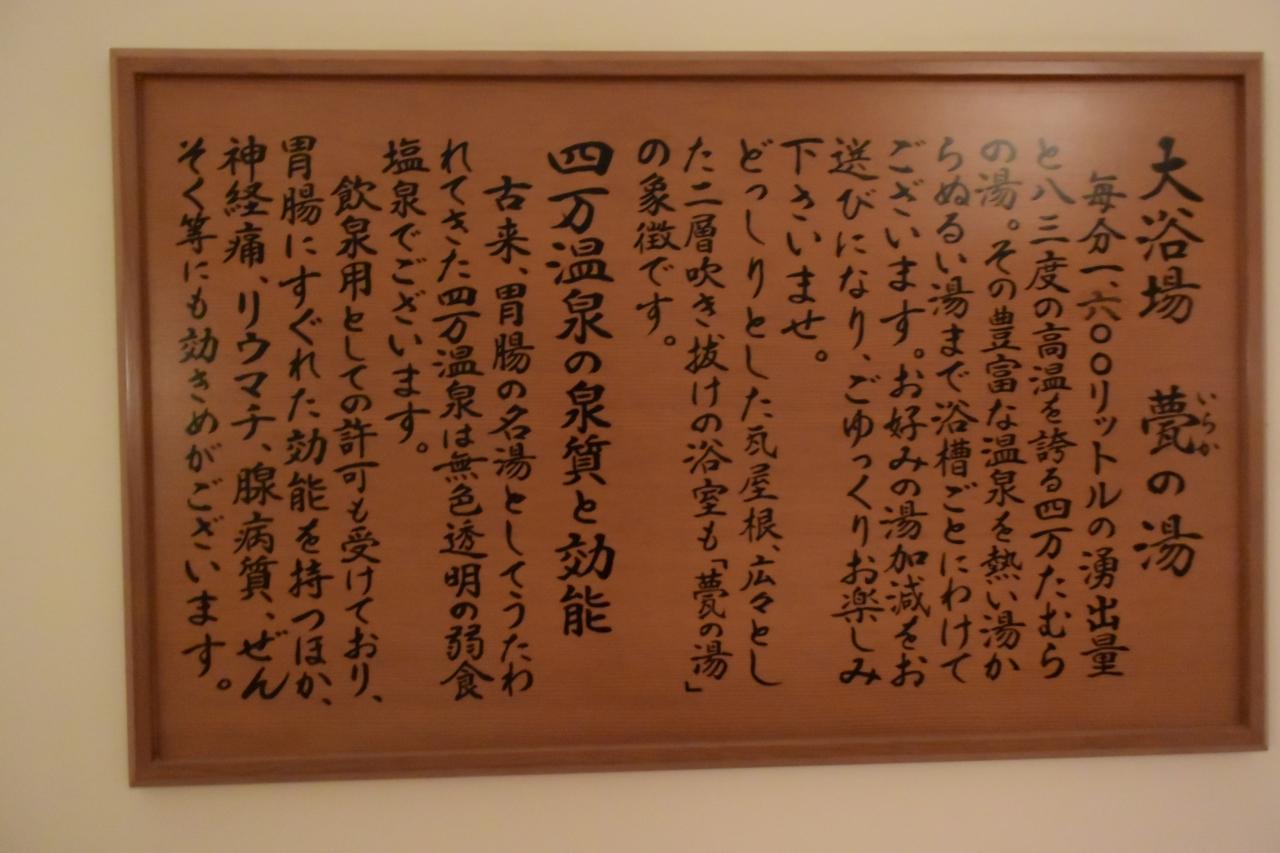 大浴場　甍の湯
いらか
毎分一、六〇〇リットルの湧出量
と八三度の高温を誇る四万たむら
の湯。その豊富な温泉を熱い湯か
らぬるい湯まで浴槽ごとにわけて
ございます。お好みの湯加減をお
選びになり、ごゆっくりお楽しみ
下さいませ。
どっしりとした瓦屋根、広々とし
た二層吹き抜けの浴室も「甍の湯」
の象徴です。
四万温泉の泉質と効能
古来、胃腸の名湯としてうたわ
れてきた四万温泉は無色透明の弱食
塩泉でございます。
飲泉用としての許可も受けており、
胃腸にすぐれた効能を持つほか、
神経痛、リウマチ、腺病質、ぜん
そく等にも効きめがございます。